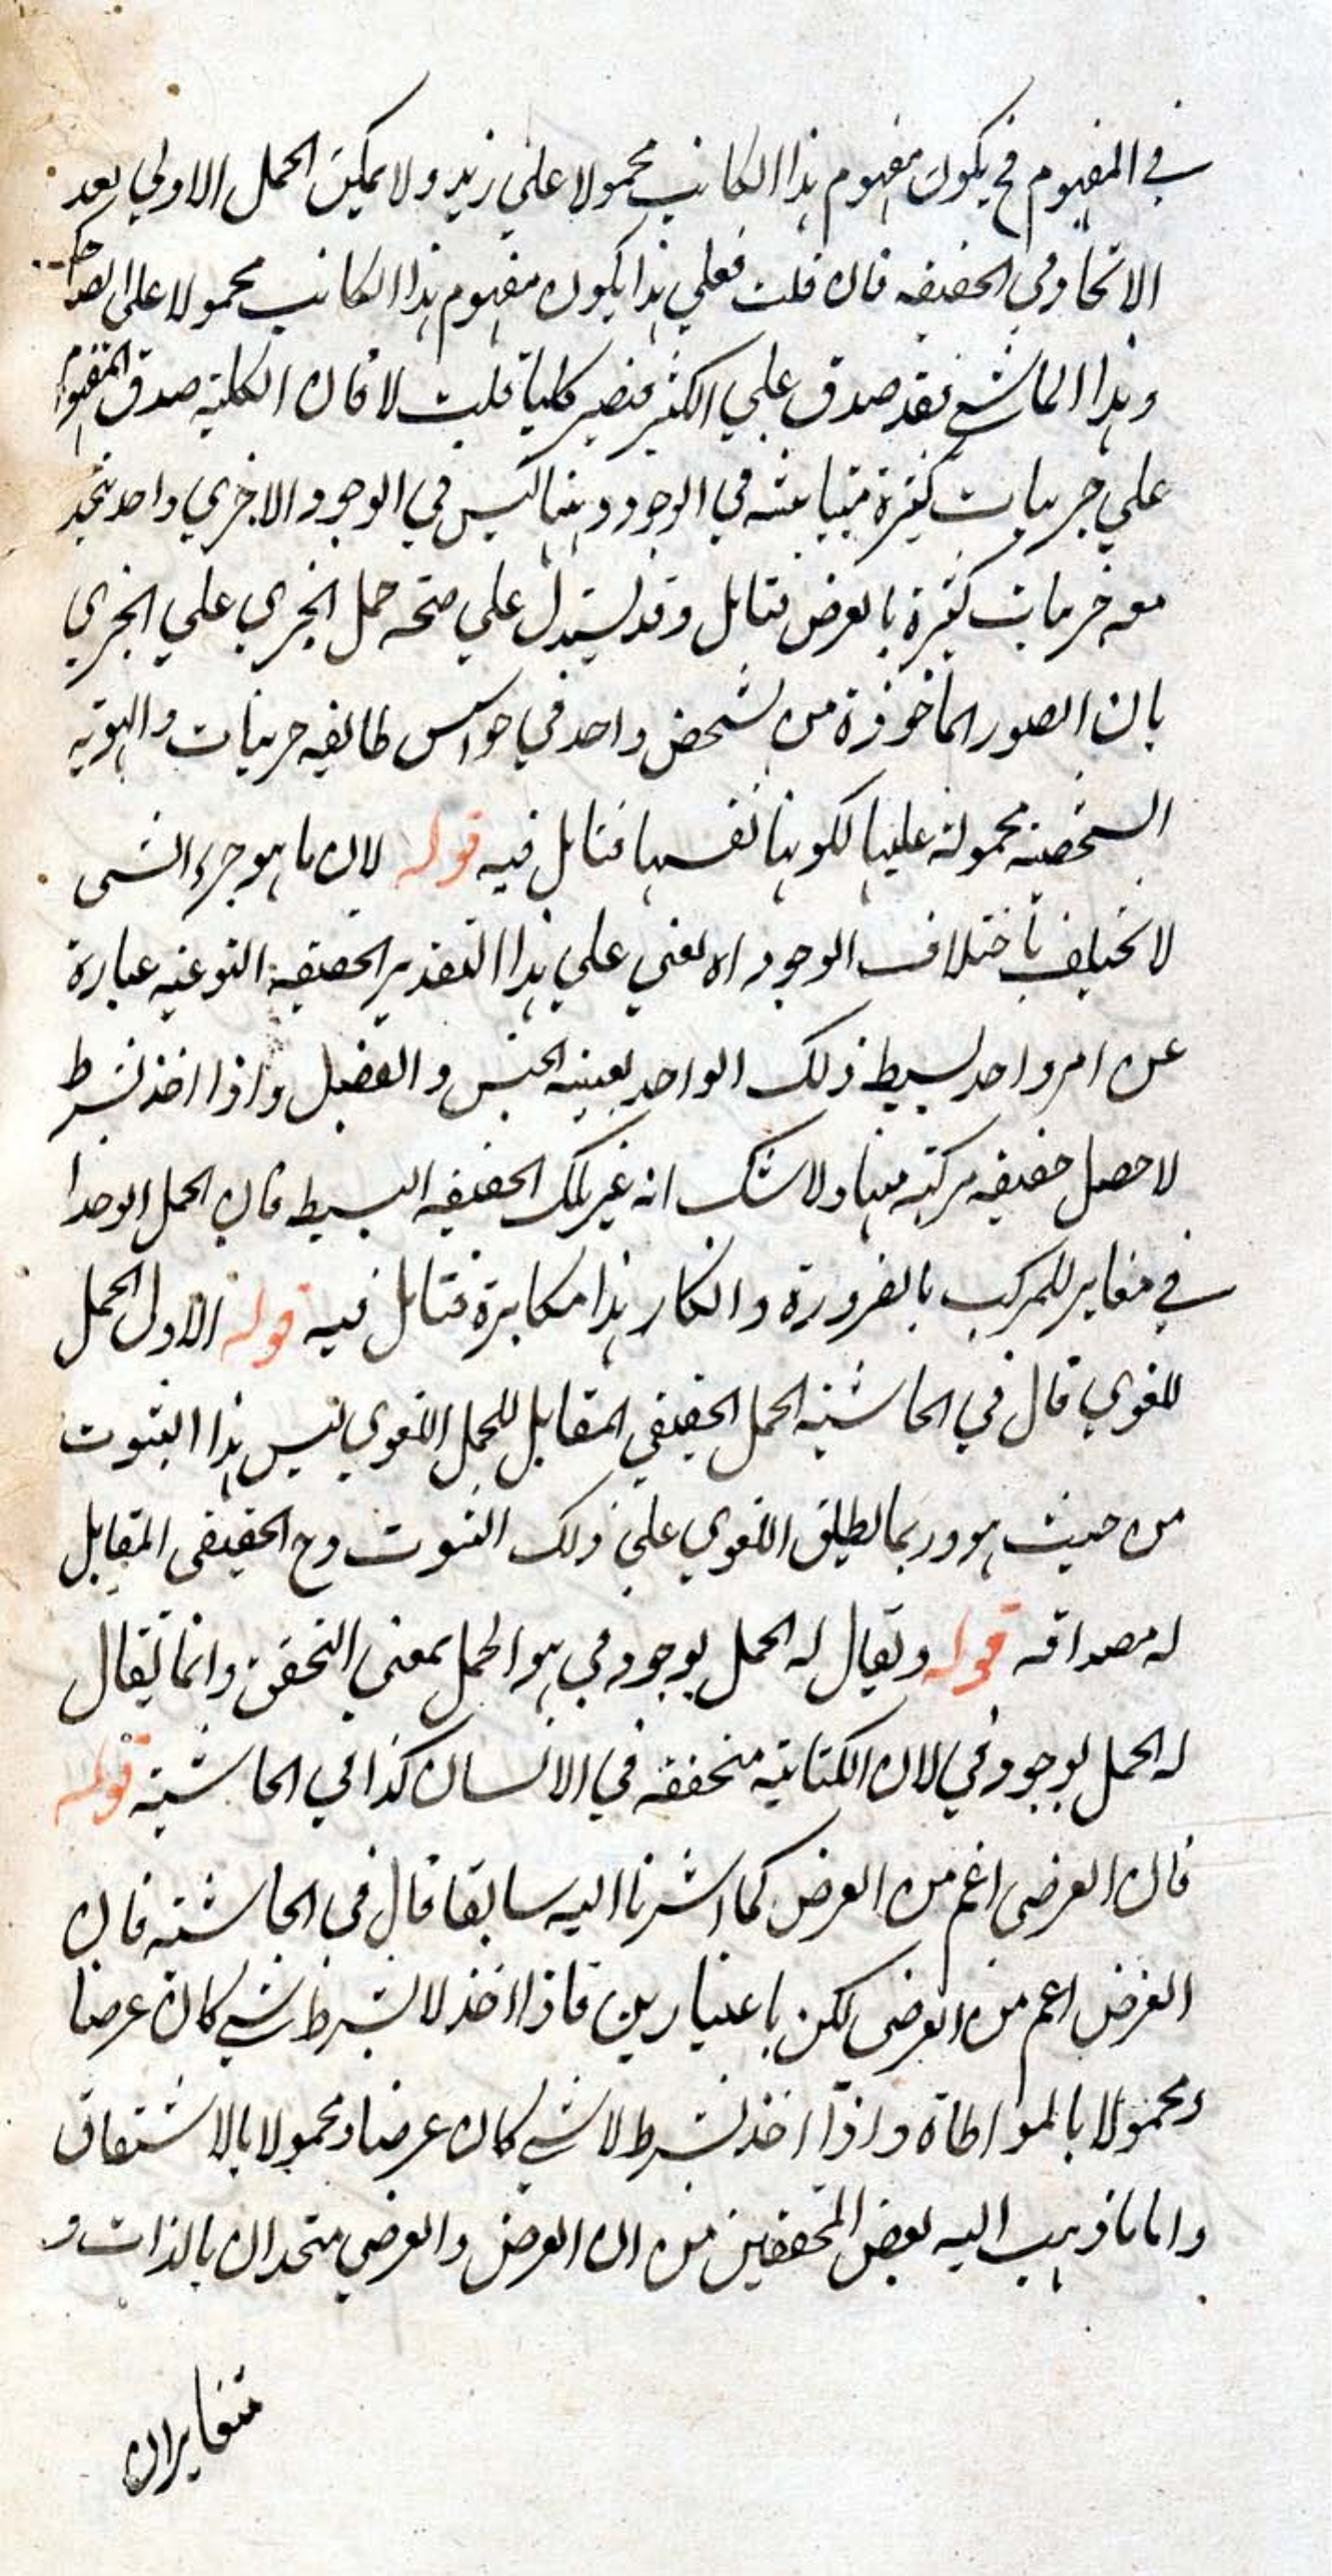 في المفهوم فح يكون مفهوم هذا الكاتب محمولا علي زيد ولا يمكن الحمل الاولي بعد
الاتحاد في الحقيقه فان قلت فعلي هذا يكون مفهوم هذا الكاتب محمولا علي الضاحك
وهذا الماشي فقد صدق علي الكثير فيصير كليا قلت لا فان الكلية صدق المفهوم
علي جزئيات كثيرة متباينه في الوجود وهنا ليس في الوجود الا جزئي واحد يتحد
معه جزئيات كثيرة بالعرض فتامل وقد يستدل علي صحه حمل الجزي علي الجزي
بان الصور الماخوذة من شخص واحد في حواس طائفه جزئيات والهويه
الشخصيه محمولة عليها لكونها نفسها فتامل فيه قوله لان ما هو جزء الشي
لا يختلف باختلاف الوجود اه يعني علي هذا التقدير الحقيقه النوعيه عبارة
عن امر واحد بسيط ذلك الواحد بعينه الجنس والفصل واذا اخذ بشرط
لا حصل حقيقه مركبة منها ولا شك انه غير تلك الحقيقه البسيطه فان الحمل الوحدا
في مغاير للمركب بالضرورة وانكار هذا مكابرة فتامل فيه قوله الاول الحمل
للغوي قال في الحاشيه الحمل الحقيقي المقابل للحمل اللغوي ليس هذا الثبوت
من حيث هو وربما يطلق اللغوي علي ذلك الثبوت وح الحقيقي المقابل
له مصداقه قوله ويقال له الحمل بوجود في هو الحمل بمعني التحقق وانما يقال
له الحمل بوجود في لان الكتابة متحققه في الانسان كذا في الحاشية قوله
فان العرضي اعم من العرض كما اشرنا اليه سابقا قال في الحاشيه فان
العرض اعم من العرضي لكن باعتبارين فاذا اخذ لا بشرط شي كان عرضيا
ومحمولا بالمواطاة واذا اخذ بشرط لا شي كان عرضا ومحمولا بالاشتقاق
واما ما ذهب اليه بعض المحققين من ان العرض والعرضي متحدان بالذات و
متغايران